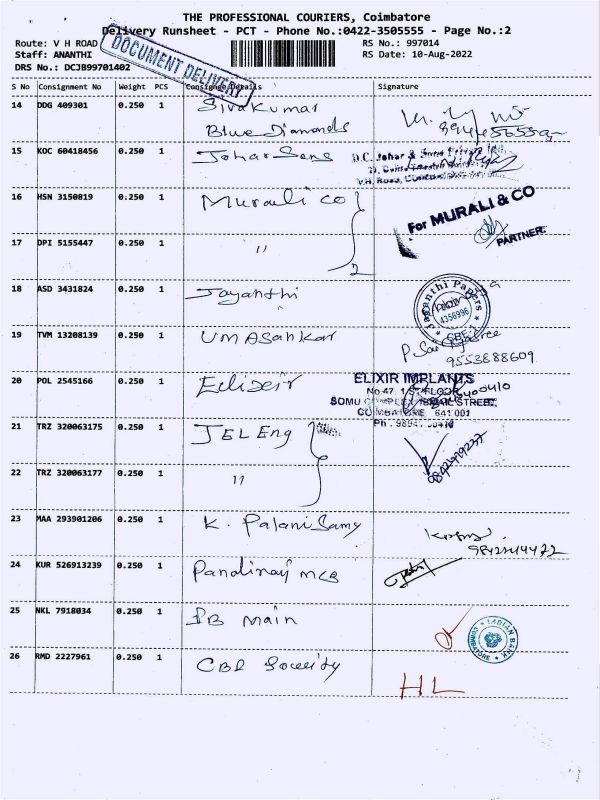 THE PROFESSIONAL COURIERS, Coimbatore
Delivery Runsheet - PCT - Phone No.:0422-3505555 - Page No.:2
Route: V H ROAD
Staff: ANANTHI
DRS No.: DCJB99701402
DOCUMENT DELIVERY
RS No.: 997014
RS Date: 10-Aug-2022
S No Consignment No Weight PCS Consignee Details Signature
14 DDG 409301 0.250 1 Sivakumar
Blue Diamonds
15 KOC 60418456 0.250 1 Johar Sons
D.C. Johar & Sons
16 HSN 3150819 0.250 1 Murauli co
For MURALI & CO
PARTNER.
17 DPI 5155447 0.250 1 "
18 ASD 3431824 0.250 1 Jayanthi
Jayanthi Papers
4358996
CBE-1
19 TVM 13208139 0.250 1 UMASankar
9553888609
20 POL 2545166 0.250 1 Elixeir
ELIXIR IMPLANTS
No 47, 1ST FLOOR
SOMU COMPLEX STREET,
COIMBATORE 641 001
21 TRZ 320063175 0.250 1 JEL Eng
22 TRZ 320063177 0.250 1 "
23 MAA 293901206 0.250 1 K. PalaniSamy
24 KUR 526913239 0.250 1 Pandinay MCB
25 NKL 7918034 0.250 1 IB main
INDIAN BANK
COIMBATORE
26 RMD 2227961 0.250 1 CBE
HL